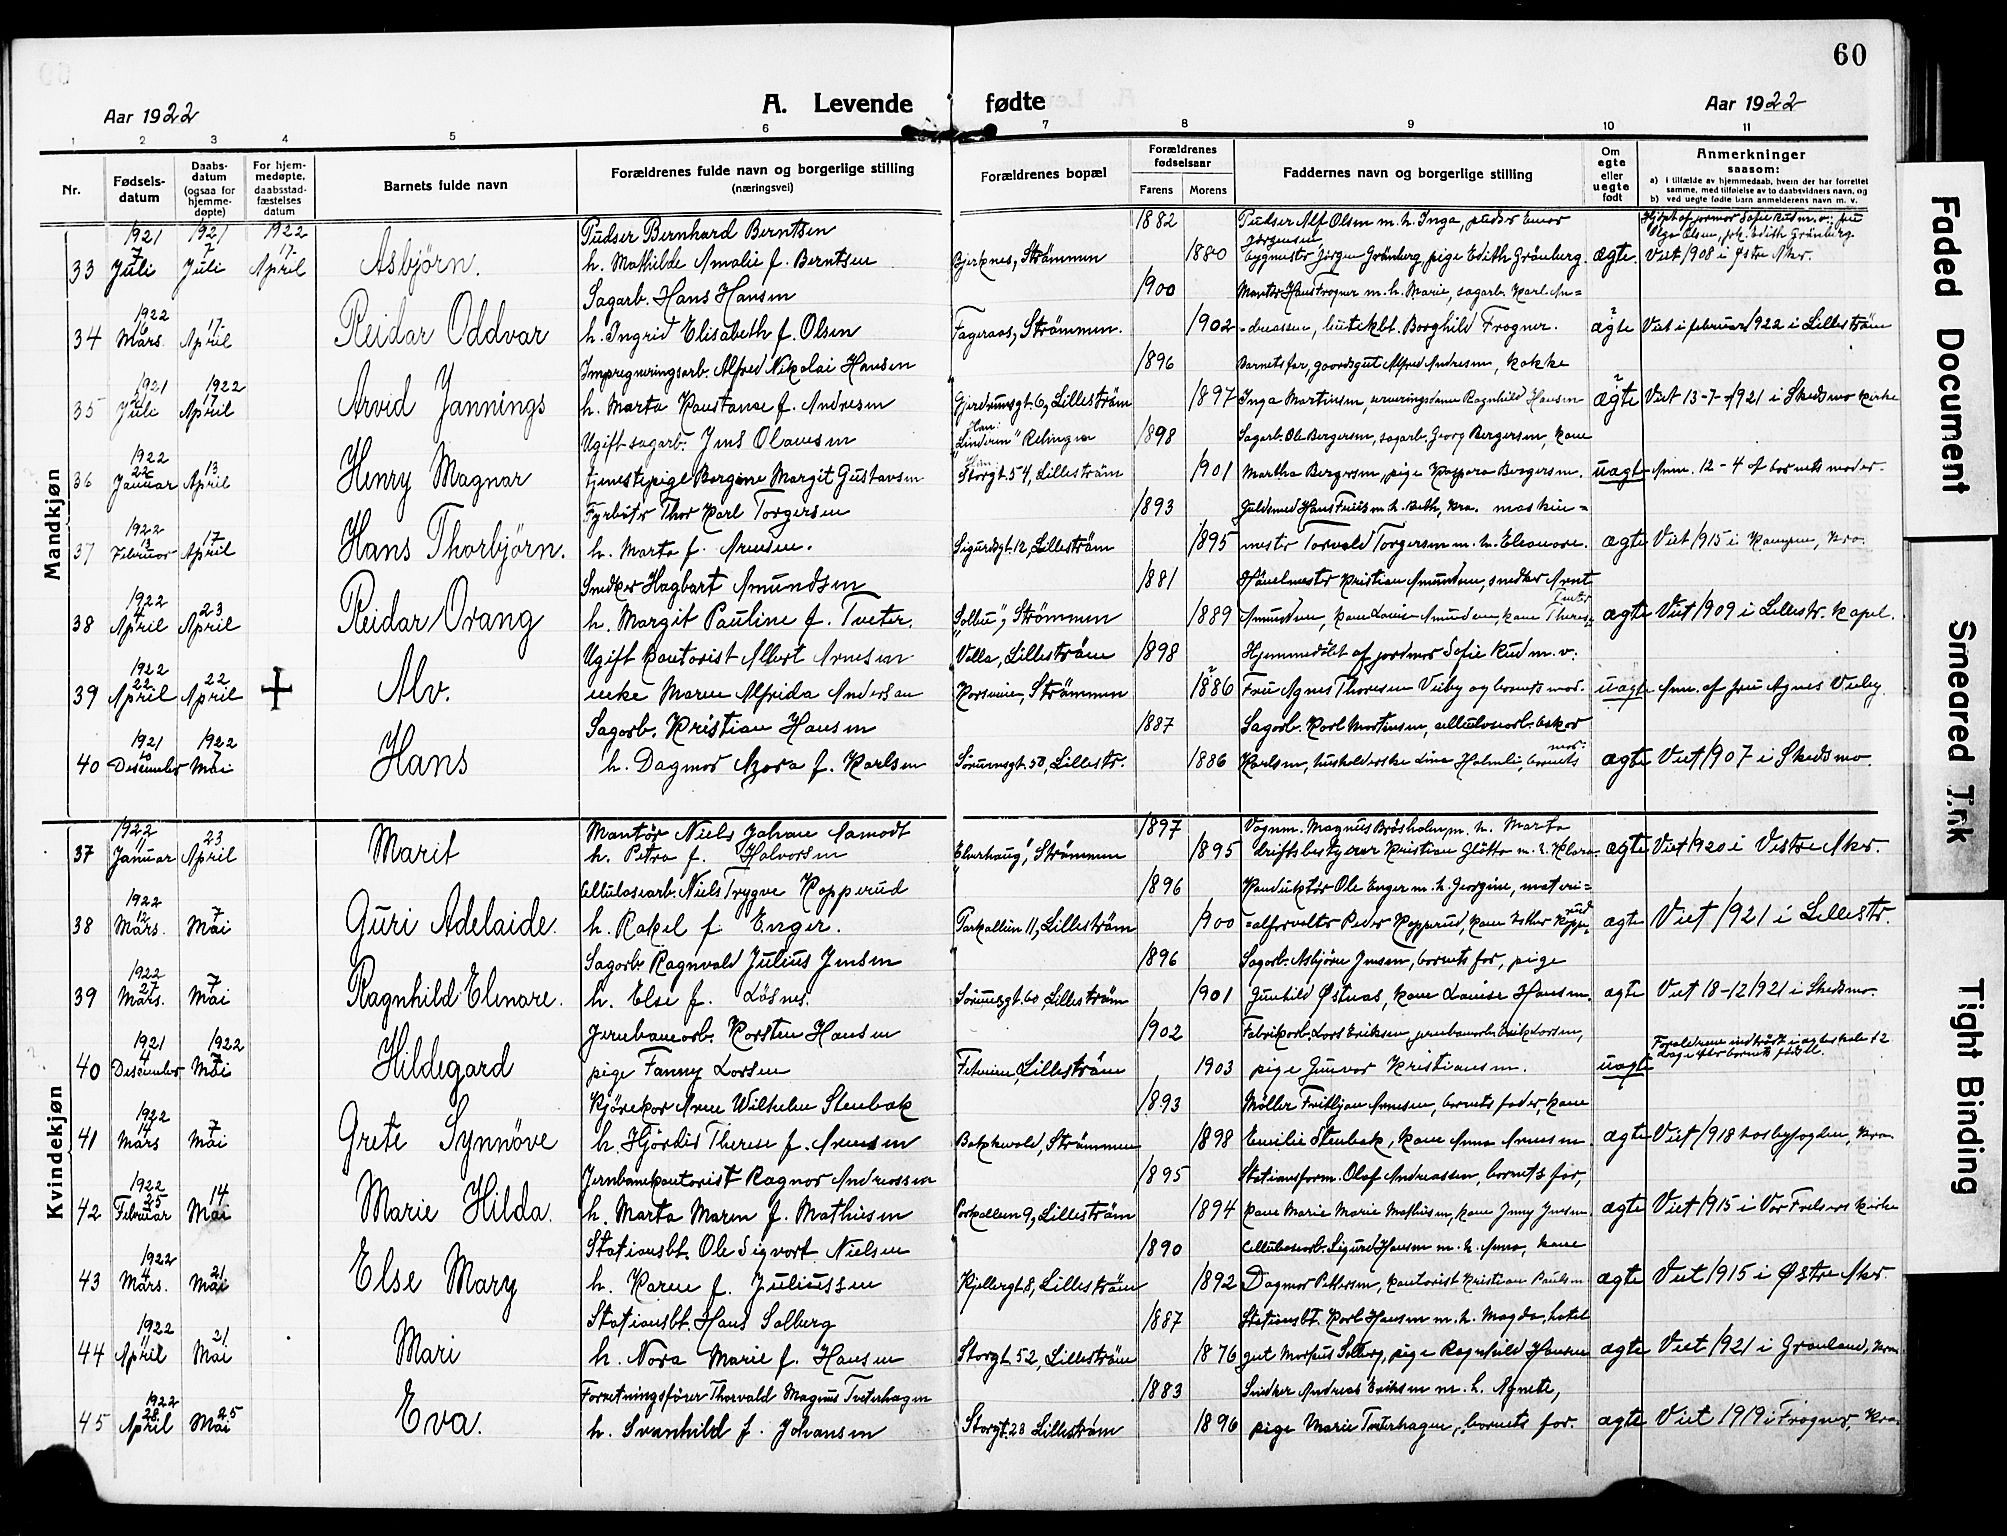 60
Aar 1922
A. Levende fødte
Aar 1922
1 2 3 4 5 6 7 8 9 10 11
Nr.
Fødsels-
datum
Daabs-
datum
(ogsaa for
hjemme-
døpte)
For hjem-
medøpte,
daabsstad-
fæstelses
datum
Barnets fulde navn
Forældrenes fulde navn og borgerlige stilling
(næringsvei)
Forældrenes bopæl
Forældrenes
fødselsaar
Farens Morens
Faddernes navn og borgerlige stilling
Om
egte
eller
uegte
født
Anmerkninger
saasom:
a) i tilfælde av hjemmedaab, hvem der har forrettet
samme, med tilføielse av to daabsvidners navn, og
b) ved uegte fødte barn anmelderens navn m. v.
Mandkjøn
1921 1921 1922 Pudser Bernhard Berntsen 1882 Pudser Alf Olsen m. h. Inga, pudser
33 7 Juli 7 Juli 17 April Asbjörn. h. Mathilde Amalie f. Berntsen Bjerknes, Strömmen 1880 bygmester Jörgen Grönberg, pige Edith Grönberg. ægte. Viet 1908 i Østre Aker.
1922 Sagarb. Hans Hansen 1900 Montör Hans Frogner m. h. Marie, sagarb. Karl An=
34 6 Mars 17 April Reidar Oddvar h. Ingrid Elisabeth f. Olsen Fageraas, Strömmen. 1902 =dreassen, butikbt. Borghild Frogner. ægte Viet i februar 1922 i Lilleström
1921 1922 Impregneringsarb. Alfred Nikolai Hansen 1896 Barnets far, gaardsgut Alfred Andresen, kokke
35 21 Juli 17 April Arvid Jannings h. Marta Konstanse f. Andresen Gjerdrumsgt. 6, Lilleström 1897 Inga Martinsen, serveringsdame Ragnhild Hansen ægte Viet 13-7-1921 i Skedsmo kirke
1922 Ugift sagarb. Jens Olausen "Linderen" Relingen 1898 Sagarb. Ole Bergersen, sagarb. Georg Bergersen, kone
36 22 Januar 13 April Henry Magnar tjenestepige Borgine Margit Gustavsen Storgt. 54, Lilleström 1901 Martha Bergersen, pige Kaspara Bergersen. uægte Anm. 12-4 af barnets moder.
1922 Fyrböter Thor Karl Torgersen 1893 Guldsmed Hans Friis m. h. Beth, Kra. maskin=
37 13 Februar 17 April Hans Thorbjörn. h. Marta f. Arnesen. Sigurdsgt. 12, Lilleström 1895 mester Torvald Torgersen m. h. Eleonore. ægte Viet 1915 i Kampen, Kra.
1922 Snedker Hagbart Amundsen 1881 Hövelmester Kristian Amundsen, snedker Arnt
38 4 April 23 April Reidar Orang h. Margit Pauline f. Tveter. "Solbu", Strömmen 1889 Amundsen, kone Lovise Amundsen, kone Therese Tveter ægte Viet 1909 i Lillestr. kapel.
1922 Ugift kontorist Albert Arnesen Volla, Lilleström 1898 Hjemmedöbt af jordmor Sofie Rud m. v.
39 22 April 22 April Alv. enke Maren Alfrida Andersen Korsveien, Strömmen 1886 Fru Agnes Thoresen Viiby og barnets mor. uægte Anm. af fru Agnes Viiby.
1921 1922 Sagarb. Kristian Hansen 1887 Sagarb. Karl Martinsen, cellulosearb. Oskar
40 10 December 7 Mai Hans h. Dagmar Azora f. Karlsen Sörumsgt. 50, Lillestr. 1886 Karlsen, husholderske Lina Holmli, barnets mor. ægte Viet 1907 i Skedsmo.
Kvindekjøn
1922 Montör Niels Johan Aamodt 1897 Vognm. Magnus Bräsholen m. h. Marta
37 1 Januar 23 April Marit h. Petra f. Halvorsen "Elverhaug", Strömmen 1895 driftsbestyrer Kristian Glötta m. h. Klara. ægte Viet 1920 i Vestre Aker.
1922 Cellulosearb. Niels Trygve Kopperud 1896 Konduktör Ole Enger m. h. Georgine, materi=
38 12 Mars. 7 Mai Guri Adelaide. h. Rakel f. Enger. Parkalleen 11, Lilleström 1900 =alforvalter Peder Kopperud, kone Esther Kopperud ægte Viet 1921 i Lillestr.
1922 Sagarb. Ragnvald Julius Jensen 1896 Sagarb. Asbjörn Jensen, barnets far, pige
39 27 Mars. 7 Mai Ragnhild Elenore. h. Else f. Lösnes. Sörumsgt. 60, Lilleström 1901 Gunhild Østnas, kone Louise Hansen. ægte Viet 18-12 1921 i Skedsmo.
1921 1922 Jernbanearb. Karsten Hansen 1902 Fabrikarb. Lars Eriksen, jernbanearb. Erik Larsen,
40 4 December 7 Mai Hildegard pige Fanny Larsen Fetveien, Lilleström 1903 pige Gunvor Kristiansen. uægte Forældrene indtraadt i ægteskab 12 dage efter barnets födsel.
1922 Kjörekar Arne Wilhelm Stenbak 1893 Möller Fritjan Arnesen, barnets fader, kone
41 14 Mars 7 Mai Grete Synnöve h. Hjördis Therese f. Arnesen Bakkevold, Strömmen 1898 Emilie Stenbak, kone Anna Arnesen. ægte Viet 1918 hos byfogden, Kra.
1922 Jernbanekontorist Ragnar Andreassen 1895 Stationsform. Olaf Andreassen, barnets far,
42 25 Februar 14 Mai Marie Hilda. h. Marta Maren f. Mathisen Parkalleen 9, Lilleström 1894 kone Marie Marie Mathisen, kone Jenny Jensen ægte Viet 1915 i Vor Frelsers kirke
1922 Stationsbt. Ole Sigvart Nielsen 1890 Cellulosearb. Sigurd Hansen m. h. Anna, kone
43 4 Mars. 21 Mai Else Mary h. Karen f. Juliussen Kjellergt. 8, Lilleström 1892 Dagmar Pettersen, kontorist Kristian Paulsen ægte Viet 1915 i Østre Aker.
1922 Stationsbt. Hans Solberg 1887 Stationsbt. Karl Hansen m. h. Magda, hotel
44 11 April 21 Mai Mari h. Nora Marie f. Hansen Storgt. 52, Lilleström 1876 gut Markus Solberg, pige Ragnhild Hansen ægte Viet 1921 i Grönland, Kra
1922 Forretningsförer Thorvald Magnus Tveterhagen 1883 Snedker Andreas Eriksen m. h. Agnete,
45 28 April 25 Mai Eva. h. Svanhild f. Johansen Storgt. 28 Lilleström 1896 pige Marie Tveterhagen, barnets far. ægte Viet 1919 i Frogner, Kra.
Faded Document
Smeared Ink
Tight Binding